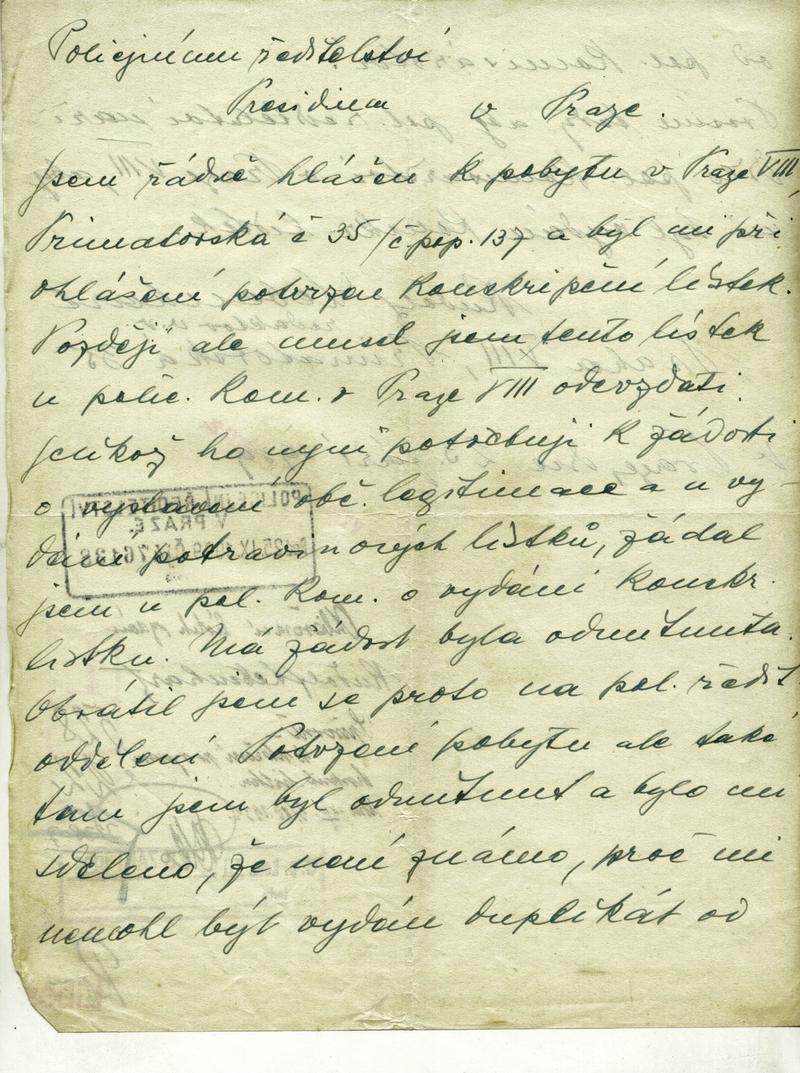 Policejnímu ředitelství
Presidium v Praze.
Jsem řádně hlášen k pobytu v Praze VIII,
Primatorská č 35/č. pop. 137 a byl mi při
ohlášení potvrzen Konskripční lístek.
Později ale musel jsem tento lístek
u polic. Kom. v Praze VIII odevzdati.
Jelikož ho nyní potřebuji k žádosti
o vystavení obč. legitimace a u vy-
dání potravinových lístků, žádal
jsem u pol. Kom. o vydání Konskr.
lístku. Má žádost byla odmítnuta.
Obrátil jsem se proto na pol. ředit.
oddělení Potvrzení pobytu ale také
tam jsem byl odmítnut a bylo mi
sděleno, že není známo, proč mi
nemohl být vydán duplikát od
POLICEJNÍ ŘEDITELSTVÍ
V PRAZE